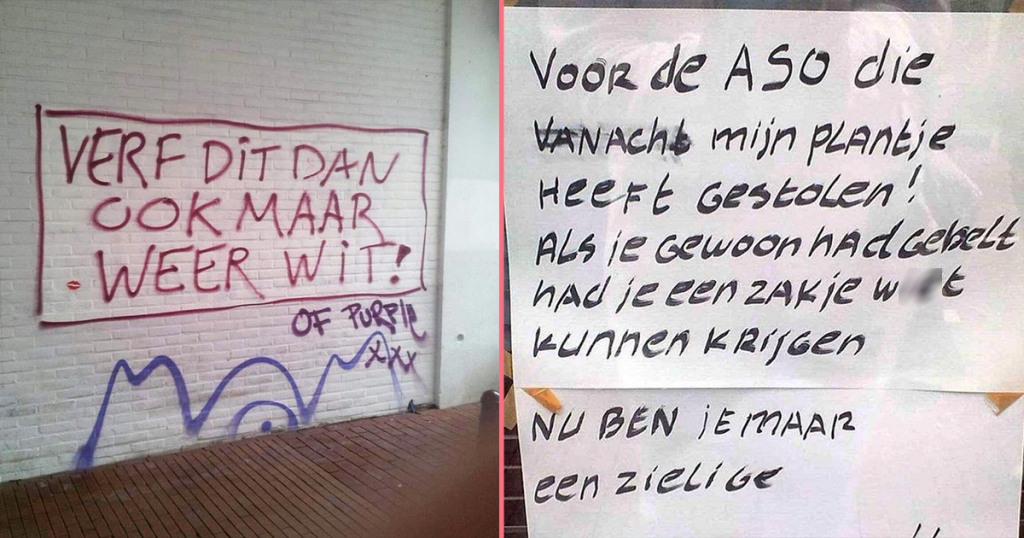 VERF DIT DAN
OOK MAAR
WEER WIT!
OF PURPLE
XXX
VOOR de ASO die
VANACHT mijn PLANTje
HEEFT GESTOLEN!
ALS je GEWOON HAD GEBELT
HAD je een ZAKje
KUNNEN KRIJGEN
NU BEN jE MAAR
een zielige